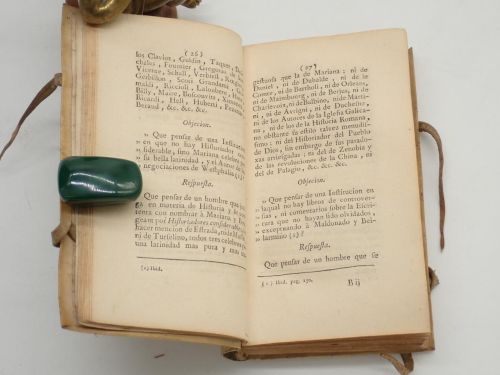 (26)
sos Clavios, Guldin, Taquet,
chales, Fournier, Gregorio de
Vicente, Schall, Verbiest,
Gerbillon, Scot, Grandami,
maldi, Riccioli, Laloubere,
Billy, Maire, Boscowitz,
Ricardi, Hell, Huberti,
Beraud, &c. &c. &c.
Objecion.
„ Que pensar de una Institucion
„ en que no hay
„ fidelidad, sino Mariana celebre
„ su bella latinidad, y el Autor de
„ negociaciones de Westphalia (1)
Respuesta.
Que pensar de un hombre que
en materia de Historia y
tenta con nombrar à Mariana, y
geant por Historiadores
hacer mencion de Estrada,
ni de Turselino, todos tres celebres
una latinidad mas pura y mas
(1) Ibid.
(27)
gestuosa que la de Mariana: ni de
Daniel, ni de Duhalde, ni de le
Comte, ni de Bartholi, ni de Orleans,
ni de Maimbourg, ni de
Charlevoix, ni de Balbino,
ni de Avrigni, ni de Duchesne,
ni de los Autores de la Iglesia Galica-
na, ni de los de la Historia Romana,
bastante
so: ni del Historiador del Pueblo
de Dios, sin embargo de sus parado-
xas arriesgadas: ni del de Zenobia y
de las revoluciones de la China, ni
del de Palafox, &c. &c. &c.
Objecion.
„ Que pensar de una Institucion en
„ laqual no hay libros de controver-
„ sias, ni comentarios sobre la Escri-
„ tura que no hayan sido olvidados,
„ exceptuando à Maldonado y Be-
„ larmino (1)?
Respuesta.
Que pensar de un hombre que se
(1) Ibid. pag. 170.
B ij